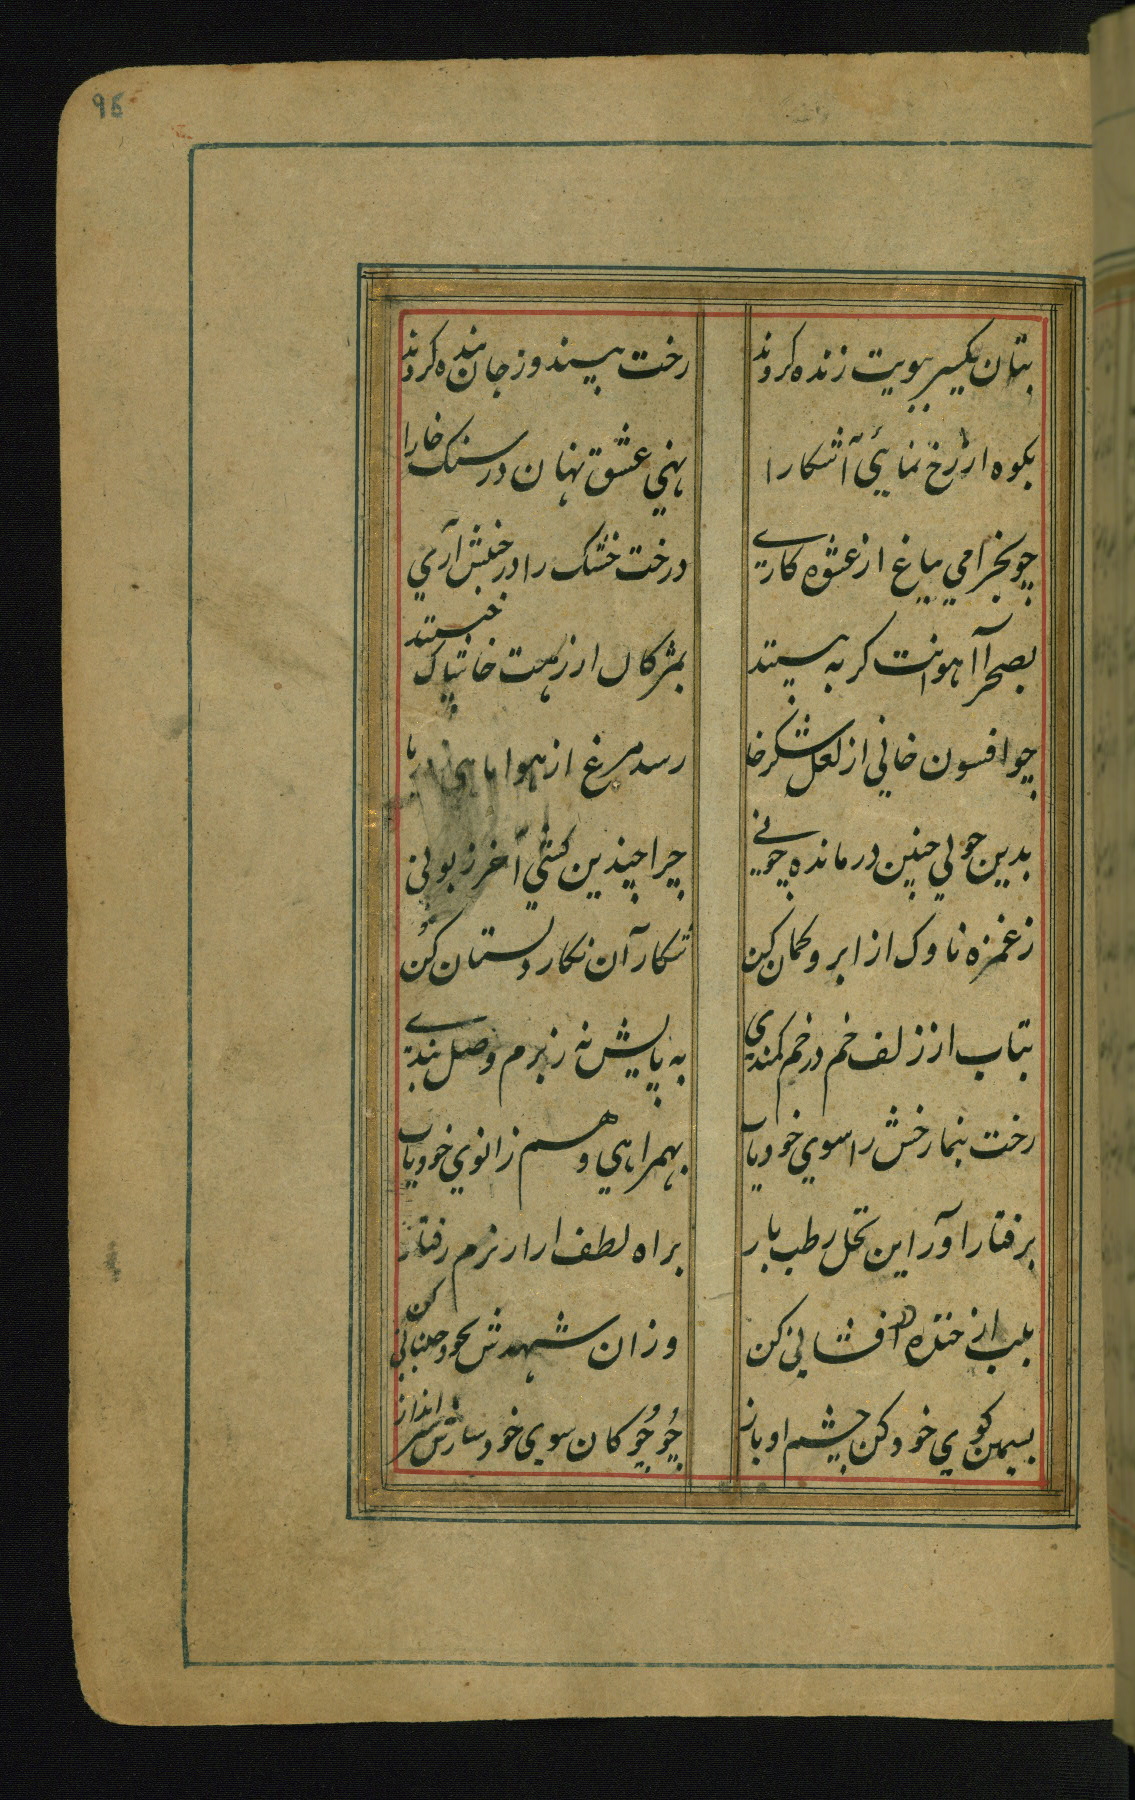 95
بتان یکسر ببویت زنده کردند
رخت بینند و ز جان بنده کردند
بکوه ار رخ نمایی آشکارا
نهی عشق نهان در سنک خارا
چو بخرامی بباغ از عشوه کاری
درخت خشک را در جنبش آری
بصحرا آهوانت کر به بینند
بمژکان از رهت خاشاک چینند
چو افسون خانی از لعل شکرخا
رسد مرغ از هوا ماهی ز دریا
بدین خوبی چنین درمانده چونی
چرا چندین کشی آخر زبونی
ز غمزه ناوک از ابرو کمان کن
شکار آن نکار دلستان کن
بتاب از زلف خم در خم کمندی
به پایش نه ز بزم وصل بندی
رخت بنما رخش را سوی خود یاب
بهمراهی و هم زانوی خود یاب
برفتار آور این نخل رطب بار
براه لطف ار ار نرم رفتار
بلب از خنده افشانی کن
وزان شهدش بخود جنبانی کن
بسیمن کوی خود کن چشم او باز
چو چوکان سوی خود سازش سر انداز